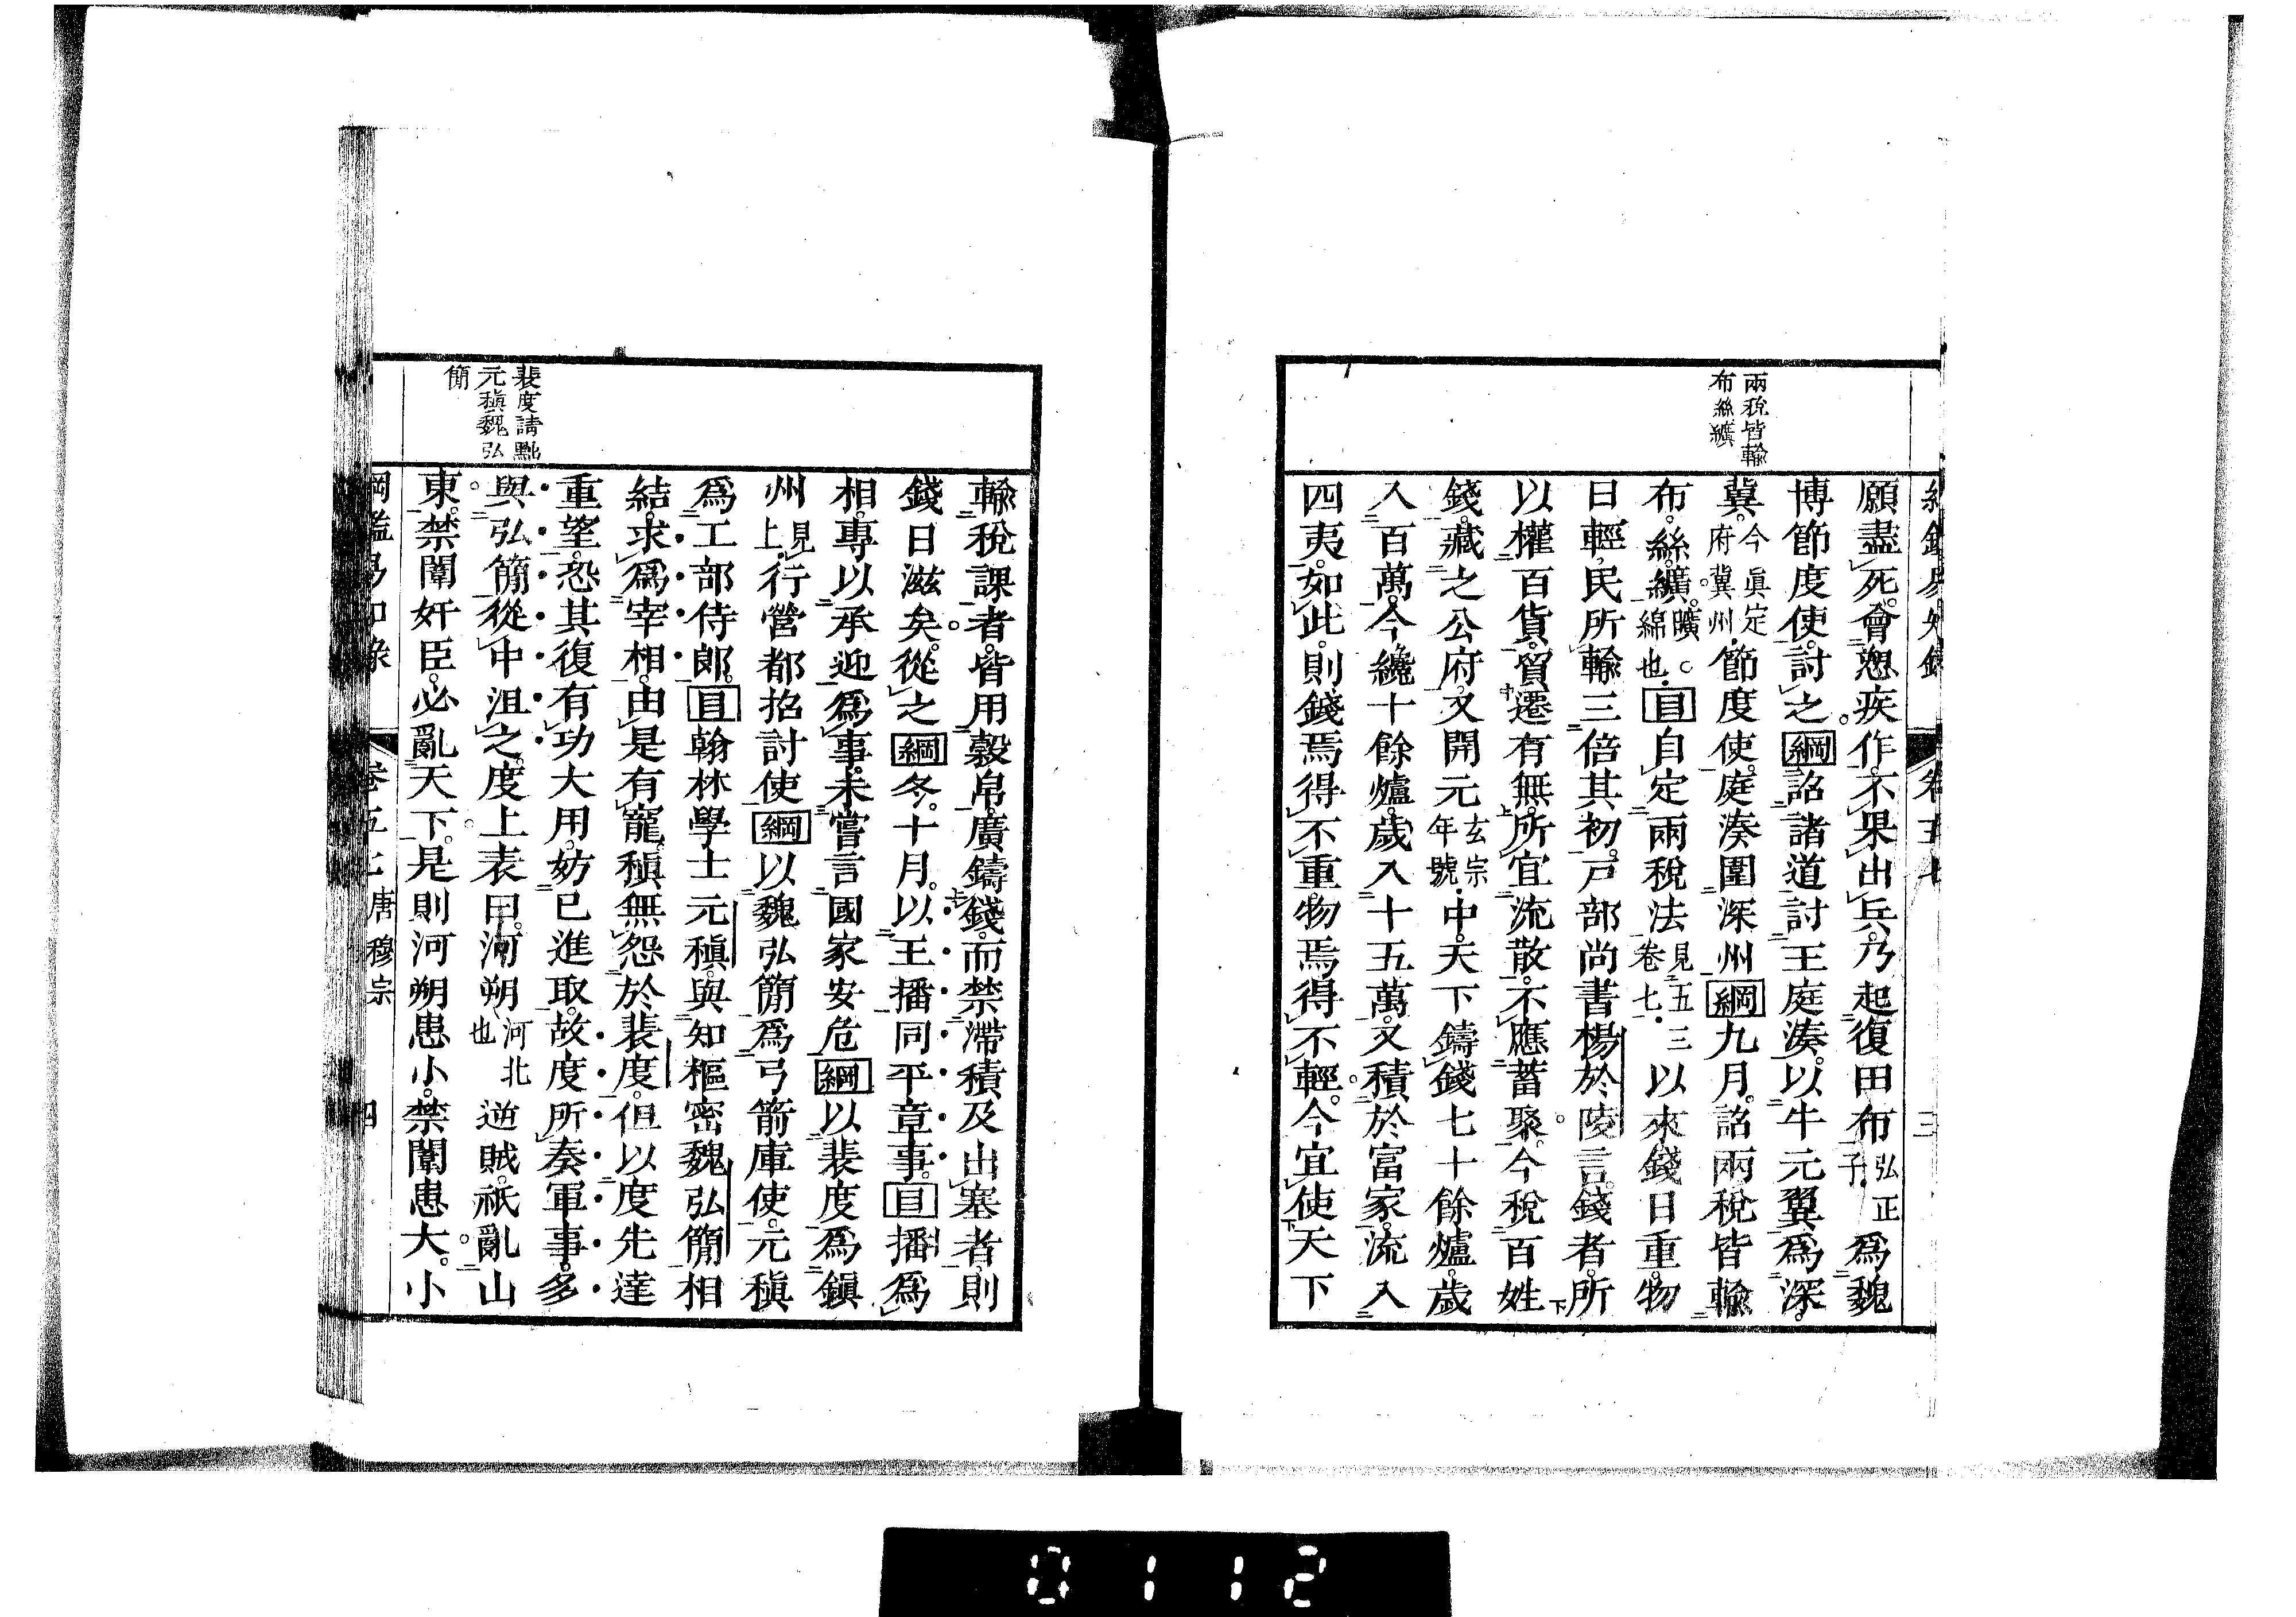 兩稅皆輸
布絲纊
願盡死會愬疾作不果出兵乃起復田布弘正子爲魏
博節度使討之綱詔諸道討王庭湊以牛元翼爲深
冀今眞定府冀州節度使庭湊圍深州綱九月詔兩稅皆輸
布絲纊曠綿也目自定兩稅法見五三卷七以來錢日重物
日輕民所輸三倍其初戶部尚書楊於陵言錢者所
以權百貨貿遷有無所宜流散不應蓄聚今稅百姓
錢藏之公府又開元玄宗年號中天下鑄錢七十餘爐歲
入百萬今纔十餘爐歲入十五萬又積於富家流入
四夷如此則錢焉得不重物焉得不輕今宜使天下
三
輸稅課者皆用穀帛廣鑄錢而禁滯積及出塞者則
錢日滋矣從之綱冬十月以王播同平章事目播爲
相專以承迎爲事未嘗言國家安危綱以裴度爲鎭
州見上行營都招討使綱以魏弘簡爲弓箭庫使元稹
爲工部侍郎目翰林學士元稹與知樞密魏弘簡相
結求爲宰相由是有寵稹無怨於裴度但以度先達
重望恐其復有功大用妨已進取故度所奏軍事多
與弘簡從中沮之度上表曰河朔河北也逆賊祇亂山
東禁闈奸臣必亂天下是則河朔患小禁闈患大小
裴度請黜
元稹魏弘
簡
唐穆宗
四
0112